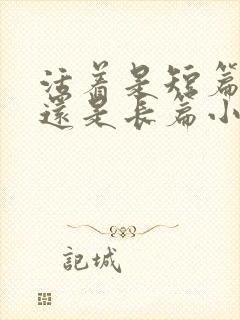 活着是短篇
還是長篇小
記城